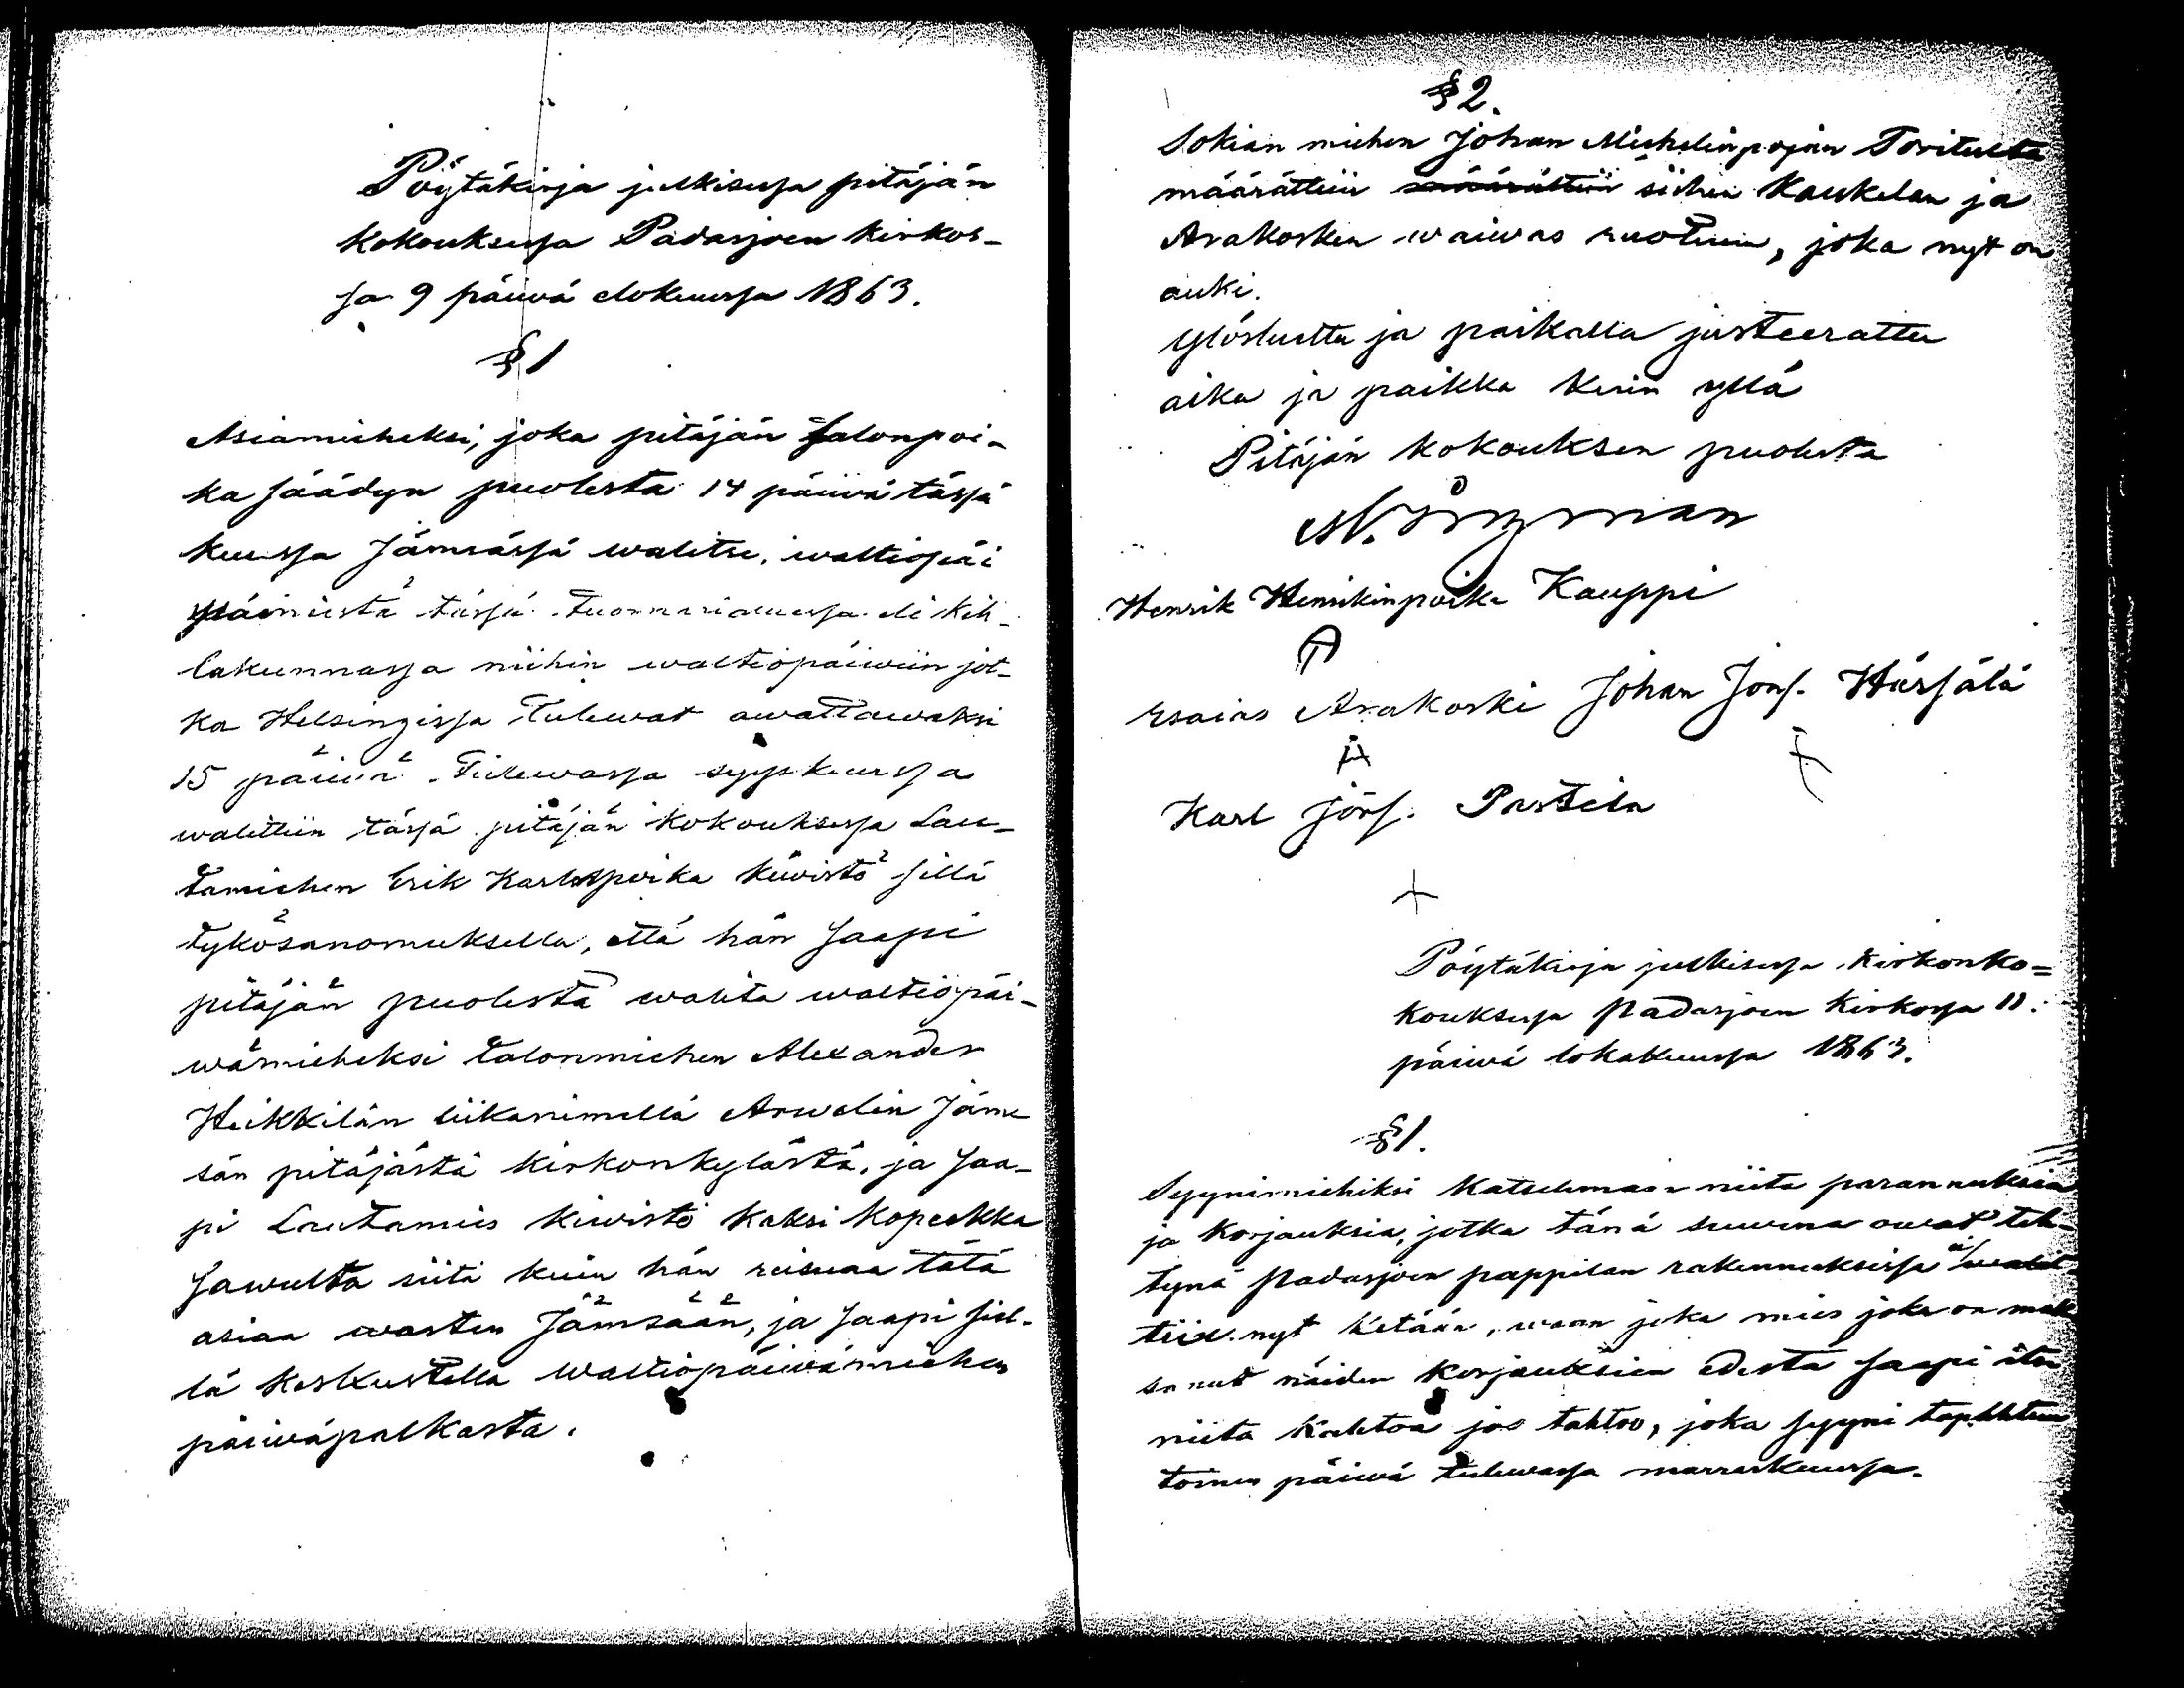 Pöytäkirja julkisessa pitäjän
kokouksessa Padasjoen kirkos-
sa 9 päiwä elokuussa 1863.
§ 1
Asiamieheksi, joka pitäjän talonpoi-
ka säädyn puolesta 14 päiwä tässä
kuussa Jämsässä walitse waltiopäi
miestä tässä tuomariakunnassa eli kih-
lakunnassa niihin waltiopäiwiin jot-
ka Helsingissä tulewat awattawaksi
15 päiwä tulewassa syyskuussa
walittiin tässä pitäjän kokouksessa Lau-
tamiehen Erik Karlspoika Kiwistö sillä
tykösanomuksella, että hän saapi
pitäjän puolesta walita waltiopäi-
wämieheksi talonmiehen Alexander
Heikkilän liikanimellä Arwelin Jäm
sän pitäjästä kirkonkylästä, ja saa-
pi Lautamies Kiwistö kaksi kopeekka
sawulta siitä kuin hän reisuaa tätä
asiaa warten Jämsään, ja saapi siel-
lä keskustella waltiopäiwämiehen
päiwäpalkasta.
§ 2.
Sokian miehen Johan Michelinpojan Toritulta
määrättiin määrättiin siihen Kaukelan ja
Arrakosken waiwas ruotuun, joka nyt on
auki.
Ylösluettu ja paikalla justeerattu
aika ja paikka kuin yllä
Pitäjän kokouksen puolesta
Henrik Henrikinpoika Kauppi
Esaias Arrakoski Johan Jons. Härsälä
Karl Jöns. Pastila
Pöytäkirja julkisessa kirkonko=
kouksessa Padasjoen kirkossa 11.
päiwä lokakuussa 1863.
§ 1.
Syynimiehiksi katselemaan niitä parannuksia
ja korjauksia, jotka tänä suwena owat teh-
tynä Padasjoen pappilan rakennuksissa ei walit-
tiix nyt ketään, waan joka mies joka on mak
sanut näiden korjauksien edestä saapi itse
niitä kahtoa jos tahtoo, joka syyni tapahtuu
toinen päiwä tulewassa marraskuussa.